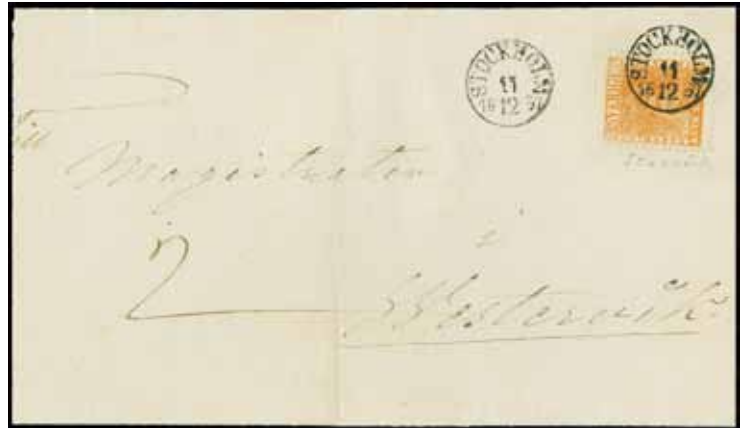 STOCKHOLM
11
12
STOCKHOLM
11
12
Till
Magistraten
2
i
Westervik